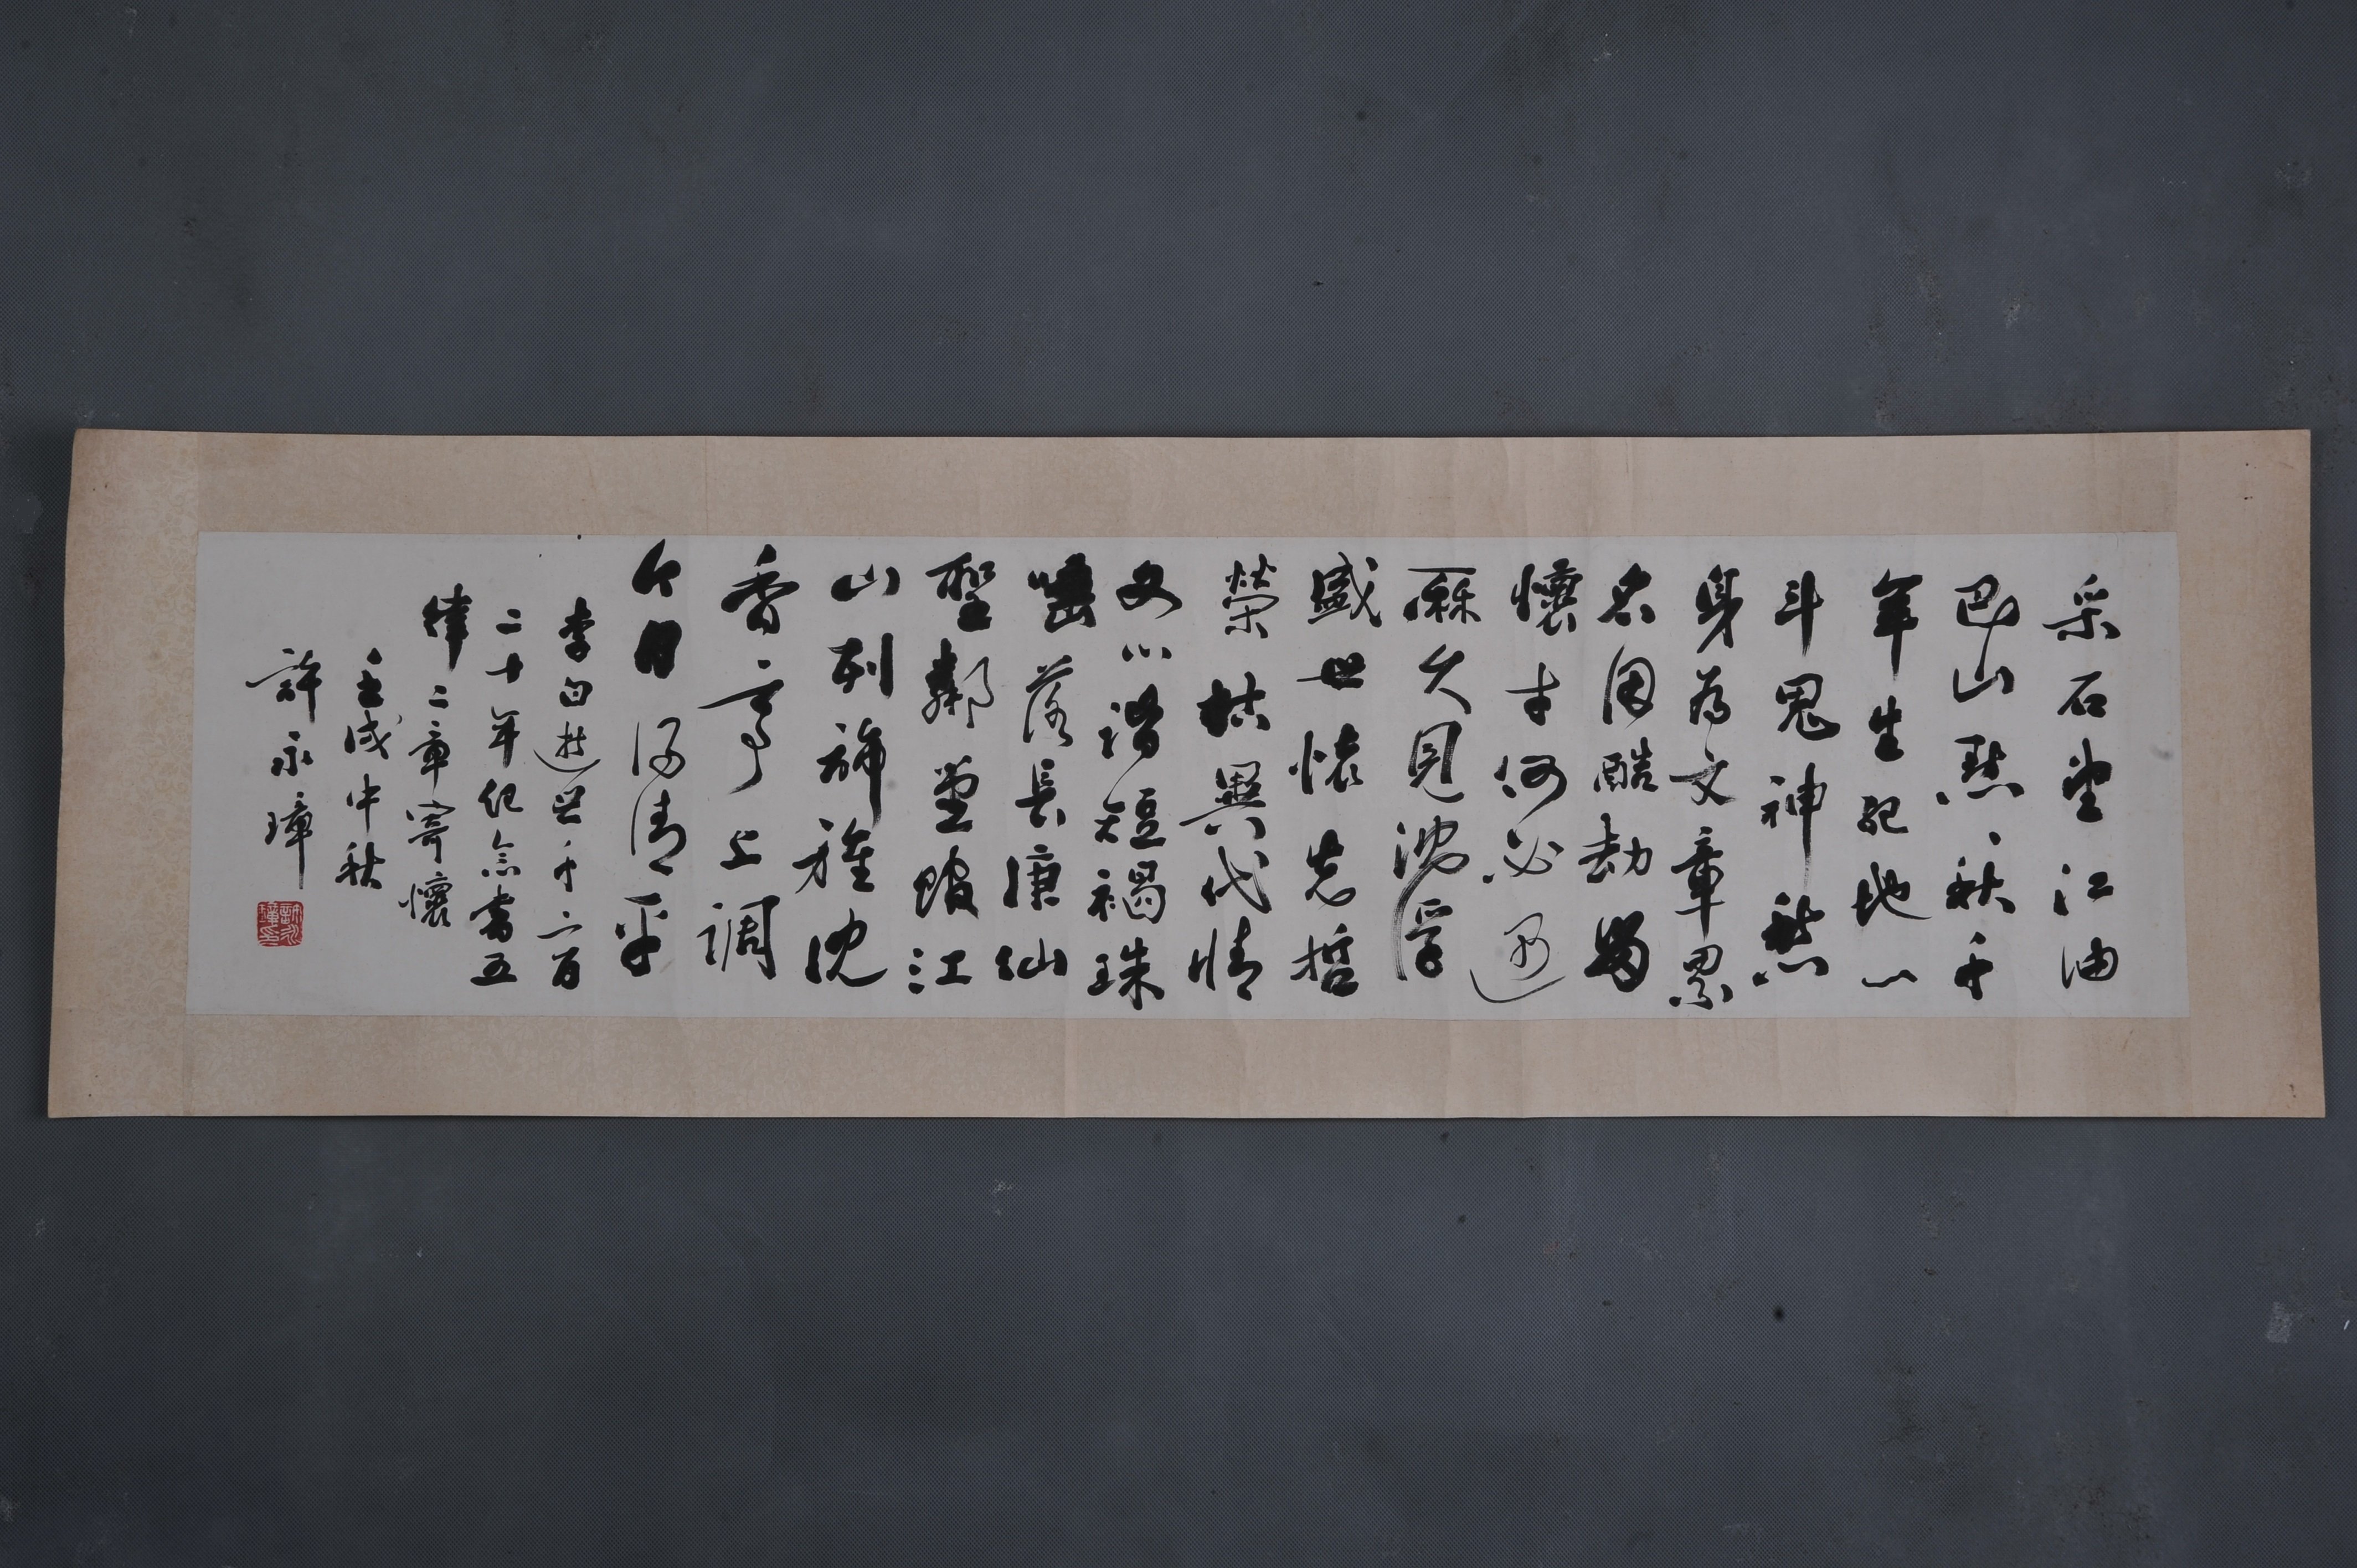 采石望江油
巴山點點秋千
年生死地一
斗鬼神愁
身為文章累
名因酷劫留
懷才何必遇
厭久見沈浮
盛世懷先哲
榮枯異代情
文心諧短褐珠
唾落長庚仙
聖鄰堂蠙江
山列旆旌沈
香亭上調
今日復清平
李白逝世千二百
二十年紀念書五
律二章寄懷
壬戌中秋
許永璋